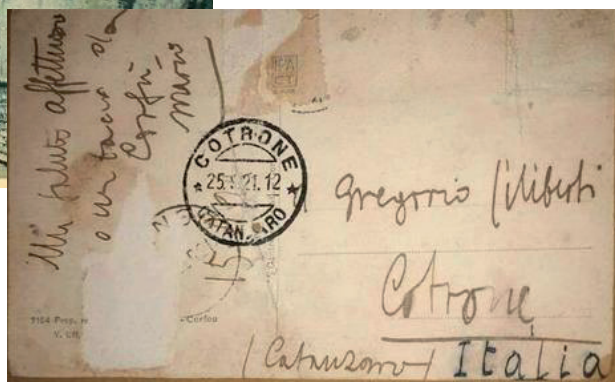 Un saluto affettuoso
e un bacio da
Corfù
Mario
COTRONE
25. 21.12
CATANZARO
15
Gregorio Ciliberti
Cotrone
(Catanzaro) Italia
7104 Prop.
- Corfou